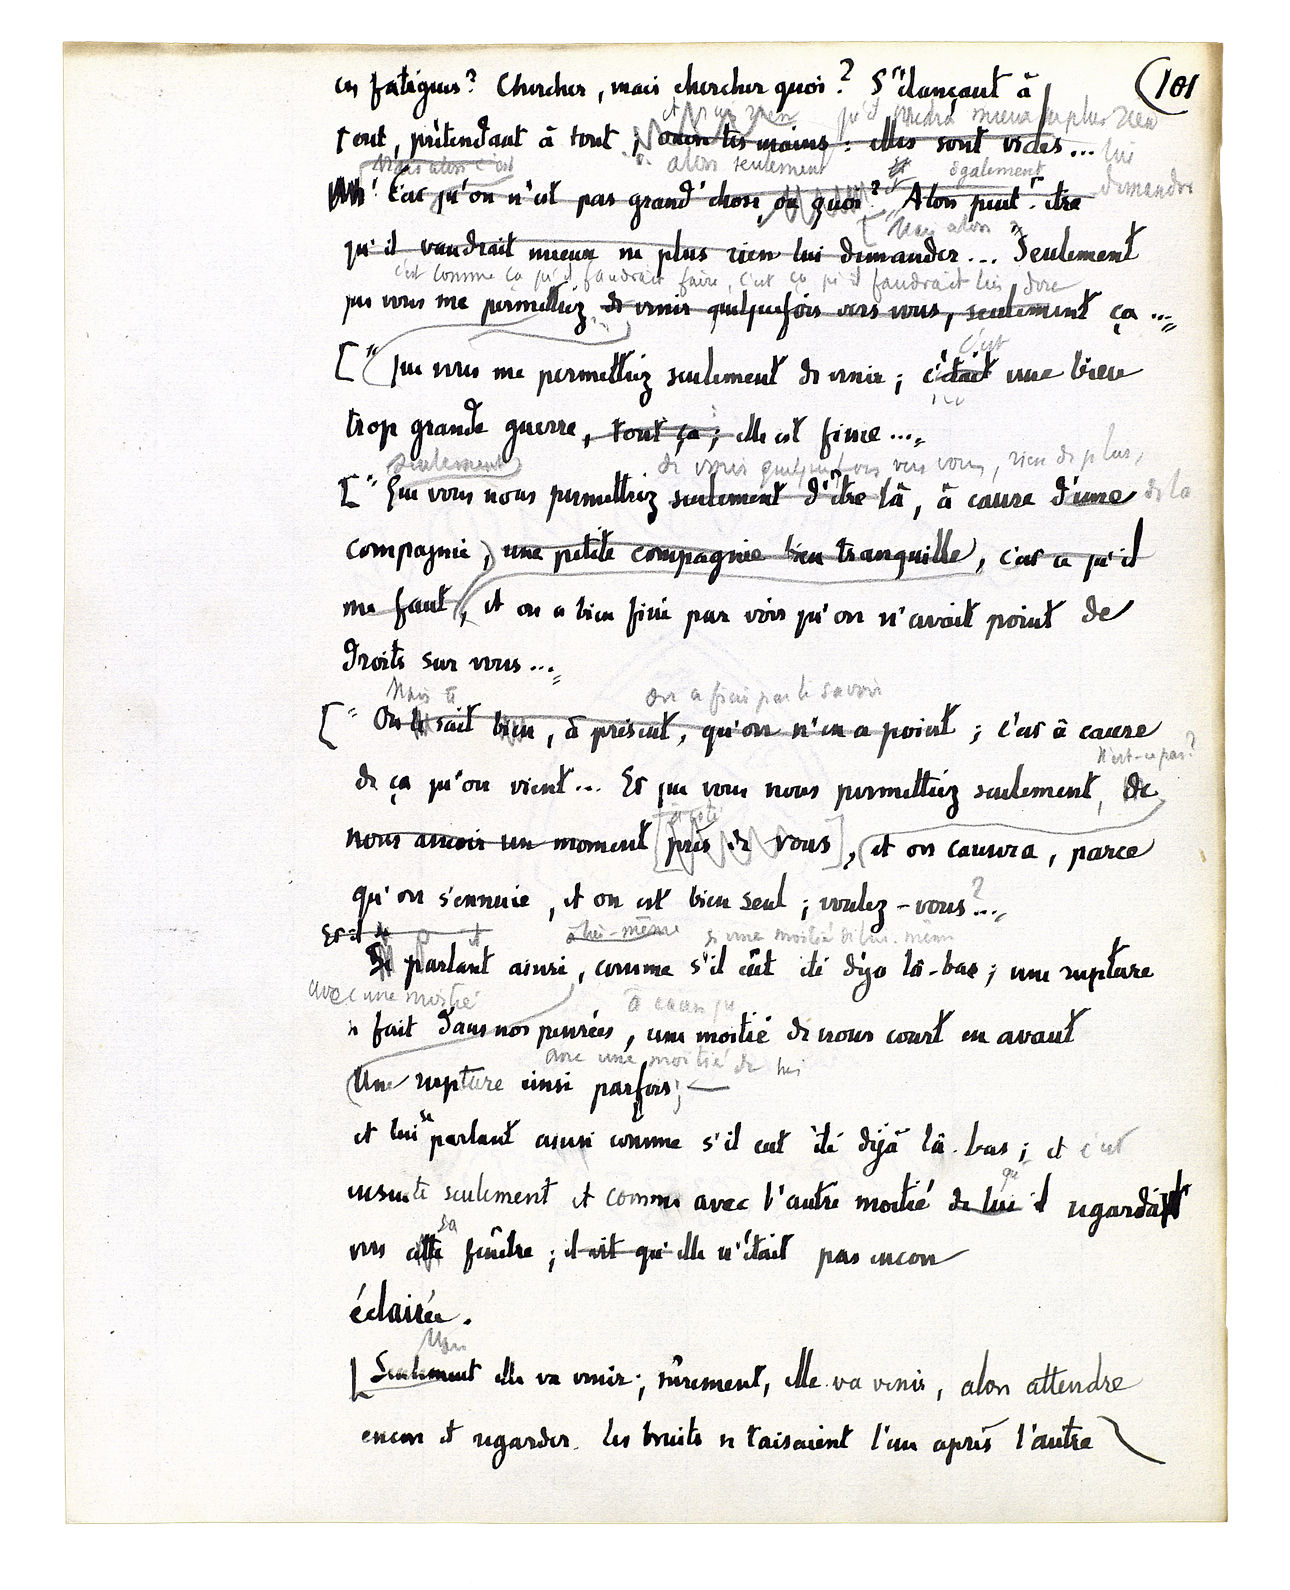 101
en fatigues? Chercher, mais chercher quoi? S'élançant à
et puis rien qu'il faudra mieux ne plus rien
tout, prétendant à tout; ouvre tes mains: elles sont vides... lui
Mais alors c'est alors seulement également demander
Ah! Car qu'on n'est pas grand'chose, ou quoi? Alors peut-être
"Mais alors
qu'il vaudrait mieux ne plus rien lui demander... Seulement
c'est comme ça qu'il faudrait faire, c'est ça qu'il faudrait lui dire
que vous me permettiez de venir quelquefois vers vous, seulement ça..."
c'est
["Que vous me permettiez seulement de venir; c'était une bien
trop grande guerre, tout ça; elle est finie..."
seulement de venir quelquefois vers vous, rien de plus,
["Que vous nous permettiez seulement d'être là, à cause d'une de la
compagnie, une petite compagnie bien tranquille, car ce qu'il
me faut, et on a bien fini par voir qu'on n'avait point de
droits sur vous..."
Mais on a fini par le savoir
["On le sait bien, à présent, qu'on n'en a point; c'est à cause
n'est-ce pas?
de ça qu'on vient... Et que vous nous permettiez seulement, de
à côté
nous asseoir un moment [près de vous], et on causera, parce
qu'on s'ennuie, et on est bien seul; voulez-vous?..."
Et il se lui-même si une moitié de lui-même
Se parlant ainsi, comme s'il eût été déjà là-bas; une rupture
avec une moitié à cause que
se fait dans nos pensées, une moitié de nous court en avant
avec une moitié de lui
Une rupture ainsi parfois;
et lui se parlant ainsi comme s'il eut été déjà là-bas; et c'est
que
ensuite seulement et comme avec l'autre moitié de lui il regardait
sa
vers cette fenêtre; il vit qu'elle n'était pas encore
éclairée.
Mais
[Seulement elle va venir; sûrement, elle va venir, alors attendre
encore et regarder. Les bruits se taisaient l'un après l'autre